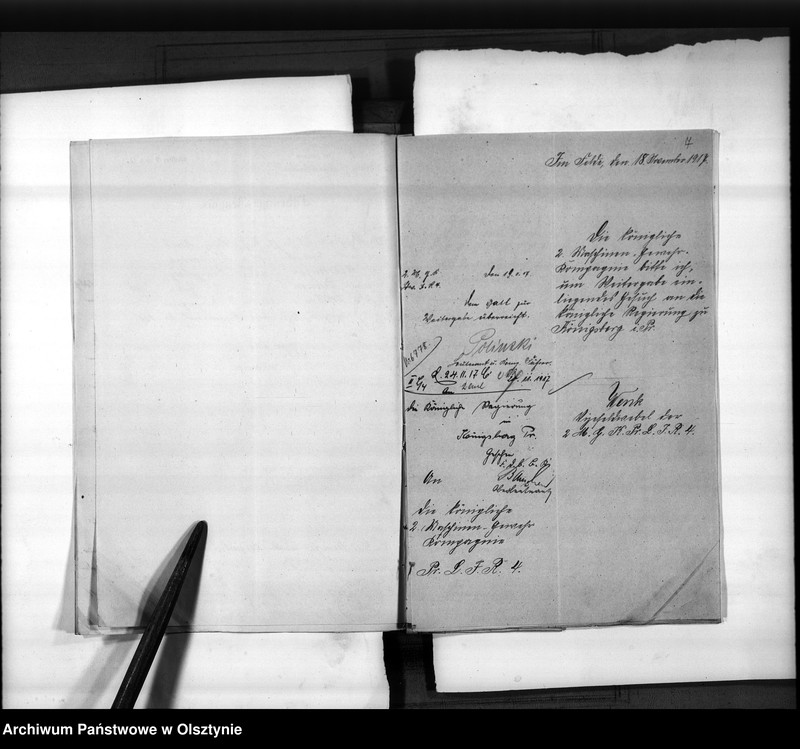 4
Im Felde, den 18. November 1917.
Die Königliche
2. Maschinen-Gewehr-
Kompagnie bitte ich,
um Weitergabe ein-
liegendes Gesuch an die
Königliche Regierung zu
Königsberg i. Pr.
Vizefeldwebel der
2. M. G. K. Pr. L. I. R. 4.
2. M. G. K.
den 19.
dem
zur
Weitergabe überreicht.
Polinski
Leutnant u. Komp. Führer.
24.11.17
1917
die Königliche Regierung
in
Königsberg Pr.
An
die Königliche
2. Maschinen-Gewehr
Kompagnie
Pr. L. I. R. 4.
Archiwum Państwowe w Olsztynie